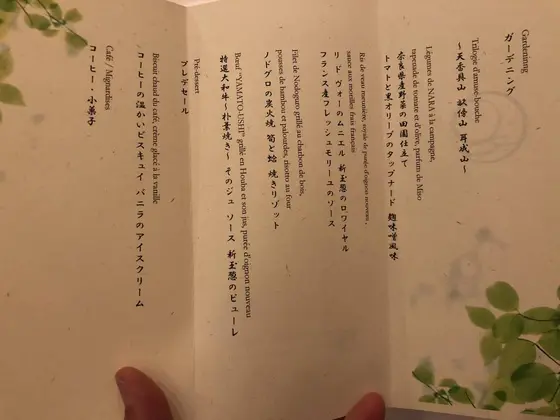 Gardening
ガーデニング
Trilogie d'amuse-bouche
～天香具山 畝傍山 耳成山～
Légumes de NARA à la campagne,
tapenade de tomate et d'olive, parfum de Miso
奈良県産野菜の田園仕立て
トマトと黒オリーブのタップナード 麹味噌風味
Ris de veau meunière, royale de purée d'oignon nouveau,
sauce aux morilles frais français
リ・ド・ヴォーのムニエル 新玉葱のロワイヤル
フランス産フレッシュモリーユのソース
Filet de Nodoguro grillé au charbon de bois,
pousses de bambou et palourdes, risotto au four
ノドグロの炭火焼 筍と蛤 焼きリゾット
Bœuf "YAMATO-USHI" grillé en Houba et son jus, purée d'oignon nouveau
特選大和牛～朴葉焼き～ そのジュ ソース 新玉葱のピューレ
Pré-dessert
プレデセール
Biscuit chaud du café, crème glacé à la vanille
コーヒーの温かいビスキュイ バニラのアイスクリーム
Café / Mignardises
コーヒー・小菓子